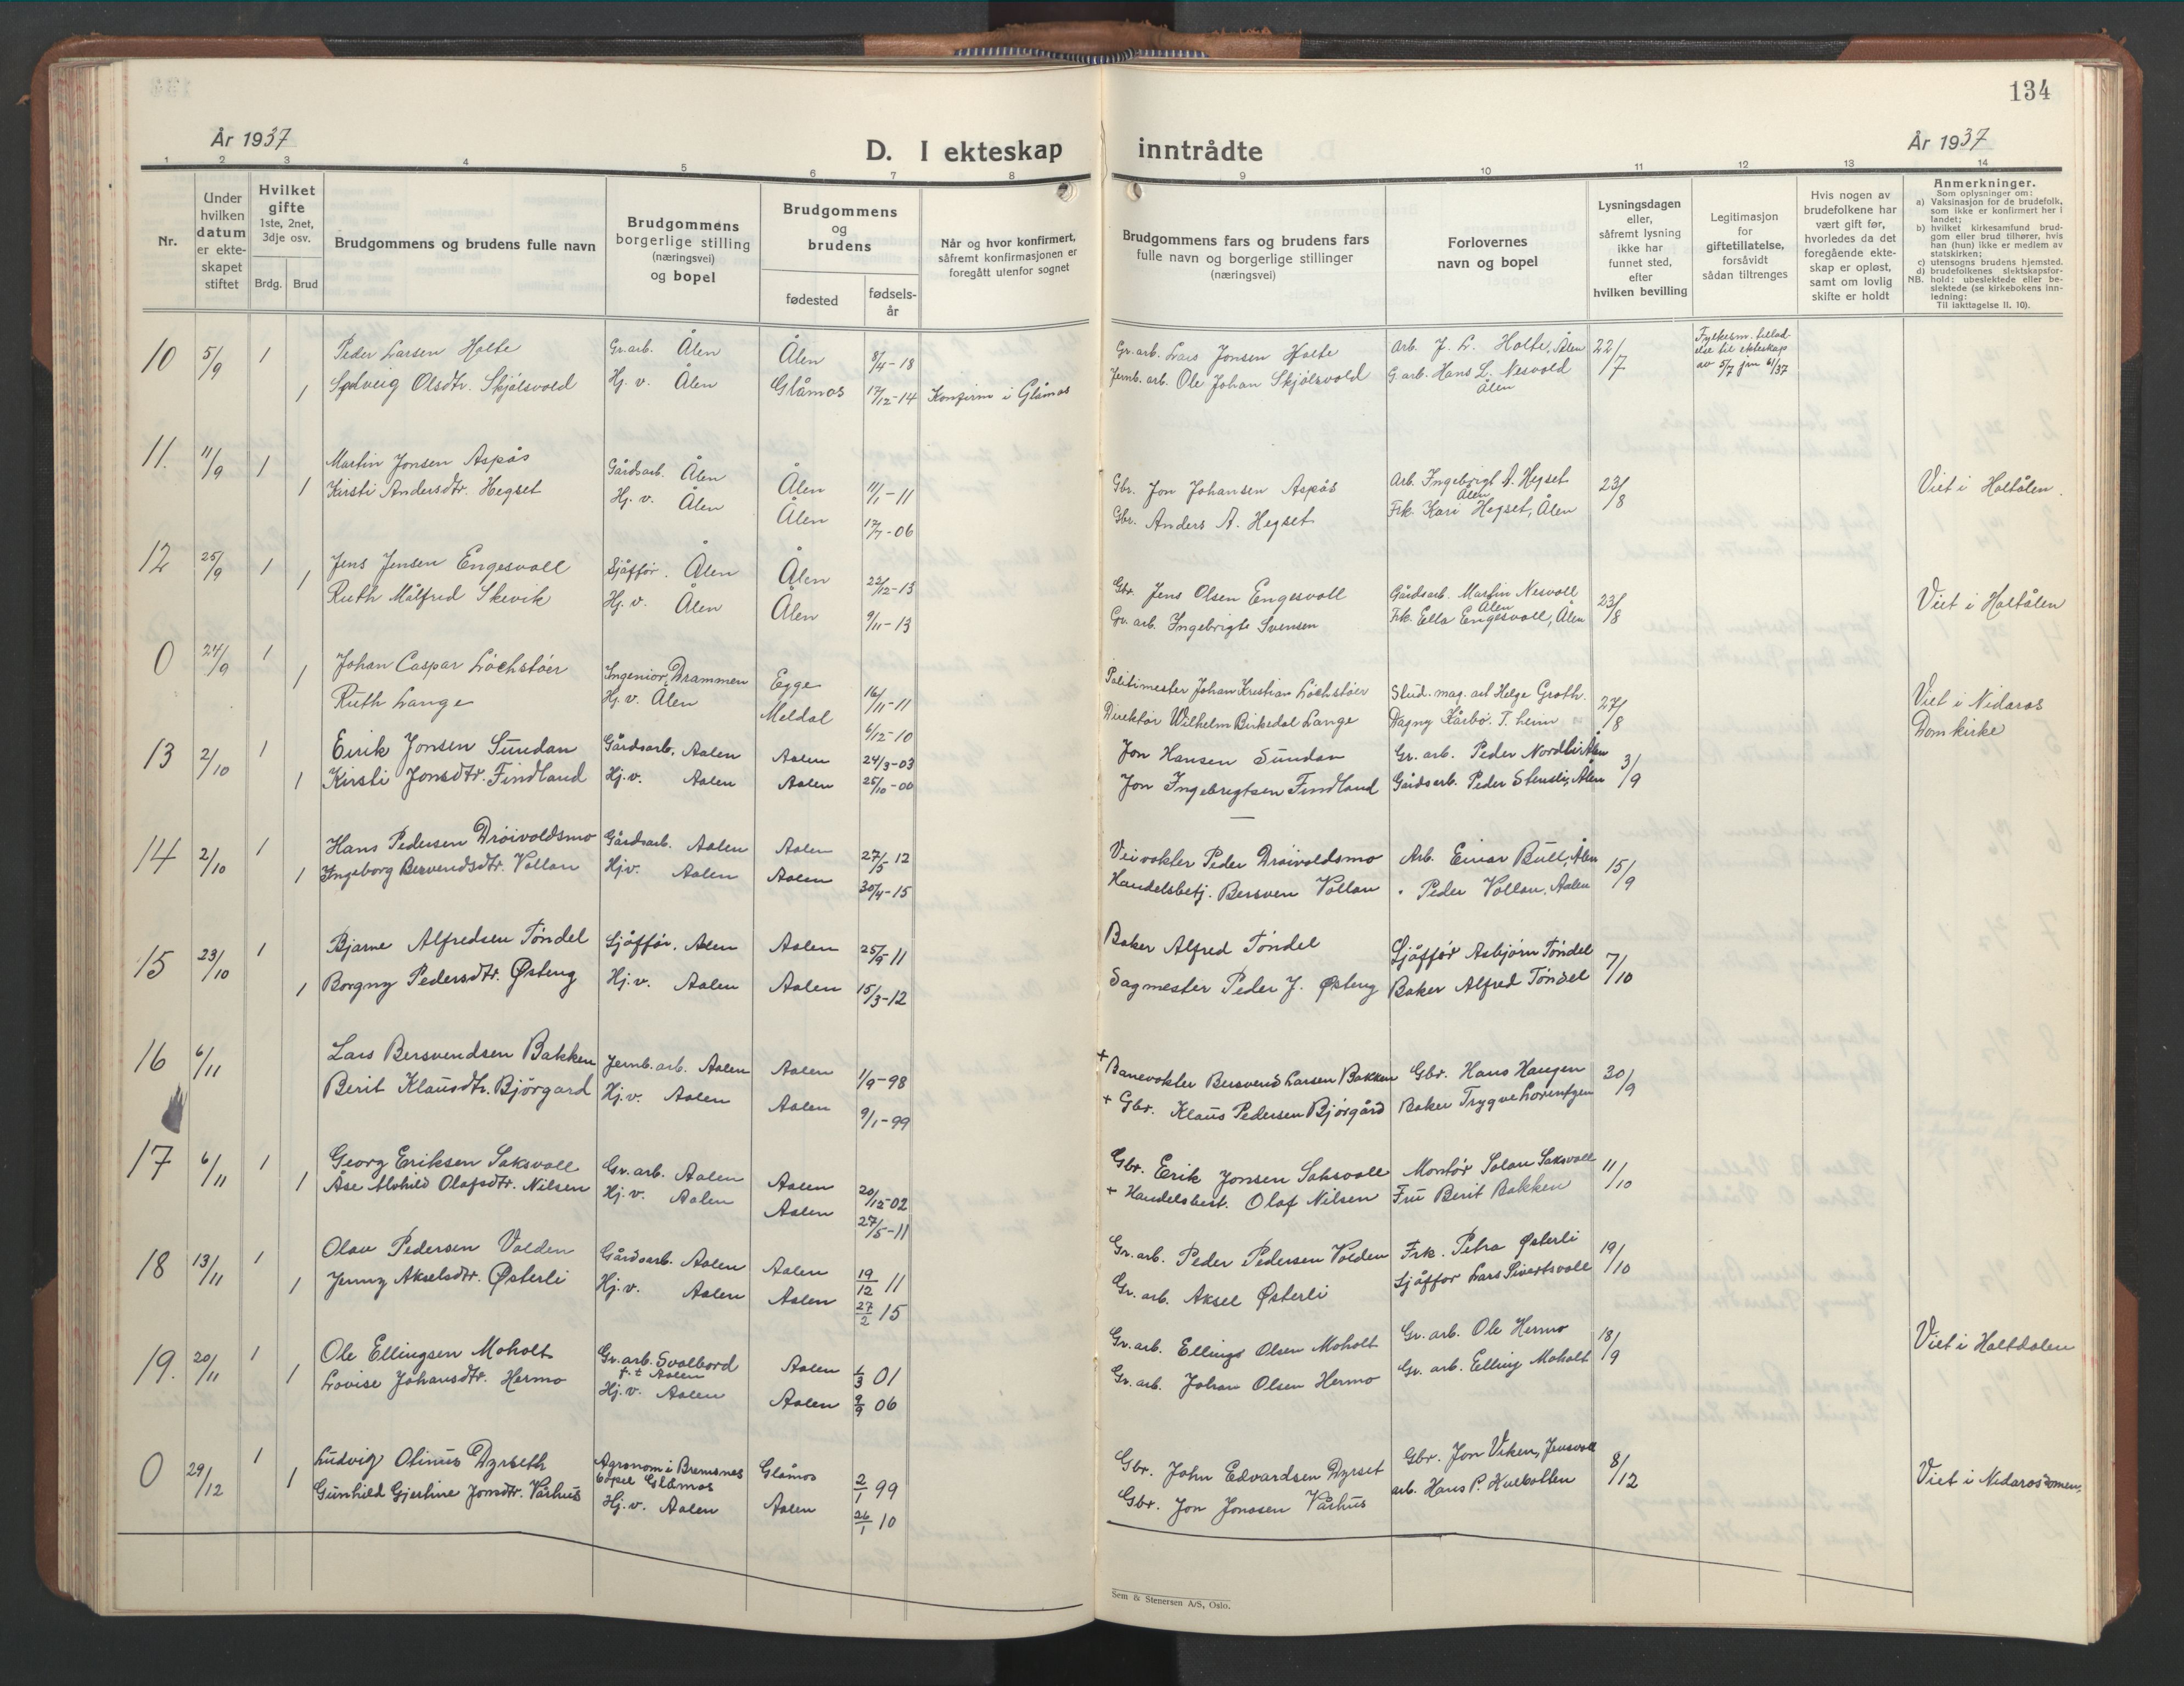 134
År 1937
D. I ekteskap inntrådte
År 1937
1 2 3 4 5 6 7 8 9 10 11 12 13 14
Nr.
Under hvilken datum er ekteskapet stiftet
Hvilket gifte 1ste, 2net, 3dje osv.
Brdg. Brud
Brudgommens og brudens fulle navn
Brudgommens borgerlige stilling (næringsvei) og bopel
Brudgommens og brudens
fødested
fødselsår
Når og hvor konfirmert, såfremt konfirmasjonen er foregått utenfor sognet
Brudgommens fars og brudens fars fulle navn og borgerlige stillinger (næringsvei)
Forlovernes navn og bopel
Lysningsdagen eller, såfremt lysning ikke har funnet sted, efter hvilken bevilling
Legitimasjon for giftetillatelse, forsåvidt sådan tiltrenges
Hvis nogen av brudefolkene har vært gift før, hvorledes da det foregående ekteskap er opløst, samt om lovlig skifte er holdt
Anmerkninger.
Som oplysninger om:
a) Vaksinasjon for de brudefolk, som ikke er konfirmert her i landet;
b) hvilket kirkesamfund brudgom eller brud tilhører, hvis han (hun) ikke er medlem av statskirken;
c) utensogns brudens hjemsted.
d) brudefolkenes slektskapsforhold: ubeslektede eller beslektede (se kirkebokens innledning:
NB.
Til iakttagelse II. 10).
10 5/9 1 Peder Larsen Holte Gr.arb. Ålen Ålen 8/4-18 Gr. arb. Lars Jonsen Holte Arb. J. L. Holte, Ålen 22/7 Fylkesm. tillad-
else til ekteskap
av 5/7 jnr 61/37
1 Solveig Olsdtr. Skjølsvold Hj. v. Ålen Glåmos 17/12-14 Konfirm i Glåmos Jernb. arb. Ole Johan Skjølsvold G. arb. Hans L. Nesvold
Ålen
11. 11/9 1 Martin Jonsen Aspås Gårdsarb. Ålen Ålen 11/1-11 Gbr. Jon Johansen Aspås Arb. Ingebrigt A. Hegset Ålen 23/8 Viet i Holtålen.
1 Kirsti Andersdtr. Hegset Hj. v. Ålen Ålen 17/7-06 Gbr. Anders A. Hegset Frk. Kari Hegset, Ålen
12 25/9 1 Jens Jensen Engesvoll Sjåffør. Ålen Ålen 22/12-13 Gbr. Jens Olsen Engesvoll Gårdsarb. Martin Nesvoll Ålen 23/8 Viet i Holtålen
1 Ruth Målfred Skevik Hj. v. Ålen Ålen 9/11-13 Gr. arb. Ingebrigte Svensen Frk. Ella Engesvoll, Ålen
0 24/9 1 Johan Caspar Lóchstöer Ingeniør, Drammen Egge 16/11-11 Politimester Johan Kristian Lóchstöer Stud. mag. art Helge Groth. 27/8 Viet i Nidaros
1 Ruth Lange Hj. v. Ålen Meldal 6/12-10 Direktör Wilhelm Birkedal Lange Dagny Kårbö. T. heim Domkirke
13 2/10 1 Eirik Jonsen Sundan Gårdsarb. Aalen Aalen 24/3-03 Jon Hansen Sundan Gr. arb. Peder Nordli Ålen 3/9
1 Kirsti Jonsdtr. Findland Hj.v. Aalen Aalen 25/10-00 Jon Ingebrigtsen Findland Gårdsarb. Peder Stensli, Ålen
14 2/10 1 Hans Pedersen Dröivoldsmo Gårdsarb. Aalen Aalen 27/5 12 Veivokter Peder Dröivoldsmo Arb. Einar Bull, Ålen 15/9
1 Ingeborg Bersvendsdtr. Vollan Hj.v. Aalen Aalen 30/4-15 Handelsbetj. Bersven Vollan " Peder Vollan, Aalen
15 23/10 1 Bjarne Alfredsen Töndel Sjåffør. Aalen Aalen 25/9 11 Baker Alfred Töndel Sjåffør Asbjørn Töndel 7/10
1 Borgny Pedersdtr. Østeng Hj.v. Aalen Aalen 15/3-12 Sagmester Peder J. Østeng Baker Alfred Töndel
16 6/11 Lars Bersvendsen Bakken Jernb. arb. Aalen Aalen 1/9-98 + Banevokter Bersvend Larsen Bakken Gbr. Hans Haugen 30/9
Berit Klausdtr. Bjørgard Hj.v. Aalen Aalen 9/1-99 + Gbr. Klaus Pedersen Bjørgård Baker Trygve Lorentzen
17 6/11 1 Georg Eriksen Saksvoll Gr. arb. Aalen Aalen 20/12-02 Gbr. Erik Jonsen Saksvoll Montör Solan Saksvoll 11/10
1 Åse Alvhild Olafsdtr. Nilsen Hj. v. Aalen Aalen 27/5-11 + Handelsbest. Olaf Nilsen Fru Berit Bakken
18 13/11 1 Olav Pedersen Volden Gårdsarb. Aalen Aalen 19/12 11 Gr. arb. Peder Pedersen Volden Frk. Petra Østerli 19/10
1 Jenny Akselsdtr. Østerli Hj. v. Aalen Aalen 27/2 15 Gr. arb. Aksel Østerli Sjåffør Lars Sivertsvoll
19. 20/11 1 Ole Ellingsen Moholt Gr. arb. Svalbard
f. t Aalen Aalen 1/3 01 Gr. arb. Ellings Olsen Moholt Gr. arb. Ole Hermo 18/9 Viet i Holtdalen
1 Lovise Johansdtr. Hermo Hj. v. Aalen Aalen 2/9 06 Gr. arb. Johan Olsen Hermo Gr. arb. Elling Moholt
0 29/12 1 Ludvig Olinus Dyrseth Agronom i Bremsnes
bopel Glåmos Glåmos 2/1 99 Gbr. John Edvardsen Dyrset Gbr. Jon Viken, Jensvoll 8/12 Viet i Nidarosdomen.
1 Gunhild Gjertine Jonsdtr. Vårhus Hj. v. Aalen Aalen 26/1 10 Gbr. Jon Jonasen Vårhus arb. Hans P. Kulbotten
Sem & Stenersen A/S, Oslo.